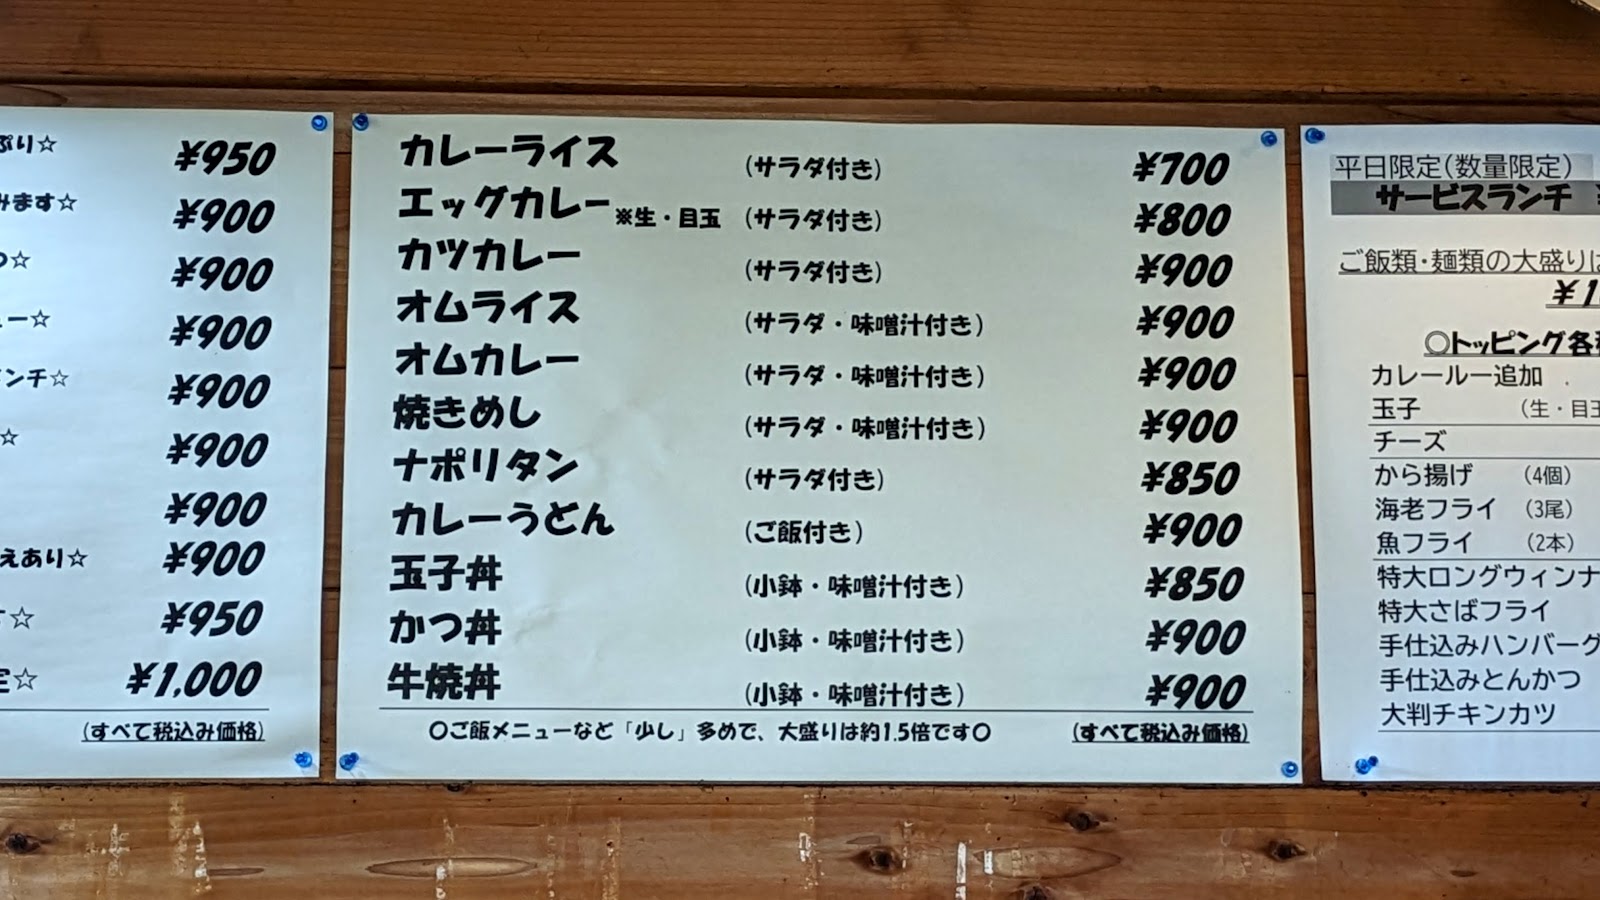 ぷり☆ ¥950
みます☆ ¥900
つ☆ ¥900
ュー☆ ¥900
ンチ☆ ¥900
☆ ¥900
¥900
えあり☆ ¥900
☆ ¥950
定☆ ¥1,000
(すべて税込み価格)
カレーライス (サラダ付き) ¥700
エッグカレー ※生・目玉 (サラダ付き) ¥800
カツカレー (サラダ付き) ¥900
オムライス (サラダ・味噌汁付き) ¥900
オムカレー (サラダ・味噌汁付き) ¥900
焼きめし (サラダ・味噌汁付き) ¥900
ナポリタン (サラダ付き) ¥850
カレーうどん (ご飯付き) ¥900
玉子丼 (小鉢・味噌汁付き) ¥850
かつ丼 (小鉢・味噌汁付き) ¥900
牛焼丼 (小鉢・味噌汁付き) ¥900
〇ご飯メニューなど「少し」多めで、大盛りは約1.5倍です〇 (すべて税込み価格)
平日限定(数量限定)
サービスランチ
ご飯類・麺類の大盛りは
¥1
○トッピング各種
カレールー追加
玉子 (生・目玉
チーズ
から揚げ (4個)
海老フライ (3尾)
魚フライ (2本)
特大ロングウィンナ
特大さばフライ
手仕込みハンバーグ
手仕込みとんかつ
大判チキンカツ